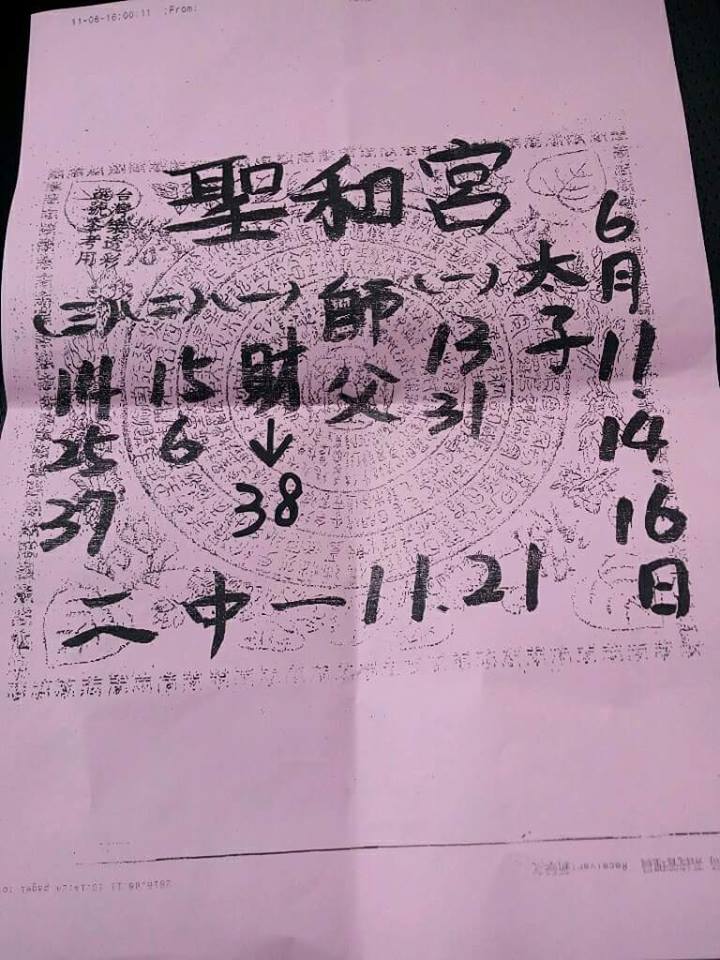 11-06-16:00:11 ;From:
聖和宮
6月11.14.16日
太子
(一) 13 31
師父
(一) 財→38
(二) 15 6
(三) 14 25 37
二中一 11.21
參考用
Receiver: